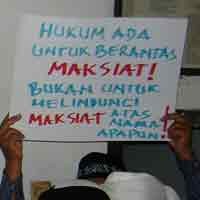 HUKUM ADA
UNTUK BERANTAS
MAKSIAT!
BUKAN UNTUK
MELINDUNGI
MAKSIAT ATAS
NAMA
APAPUN!